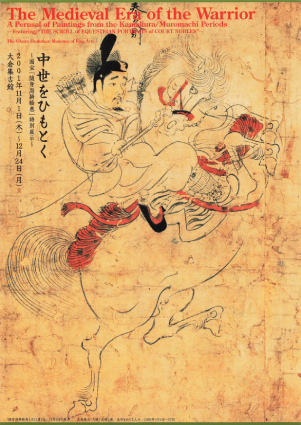 The Medieval Era of the Warrior
A Perusal of Paintings from the Kamakura/Muromachi Periods
— featuring "THE SCROLL of EQUESTRIAN PORTRAITS of COURT NOBLES" —
The Okura Shukokan Museum of Fine Arts
中世をひもとく
—国宝「随身庭騎絵巻」特別展示—
2001年11月1日(木)〜12月24日(月)
大倉集古館